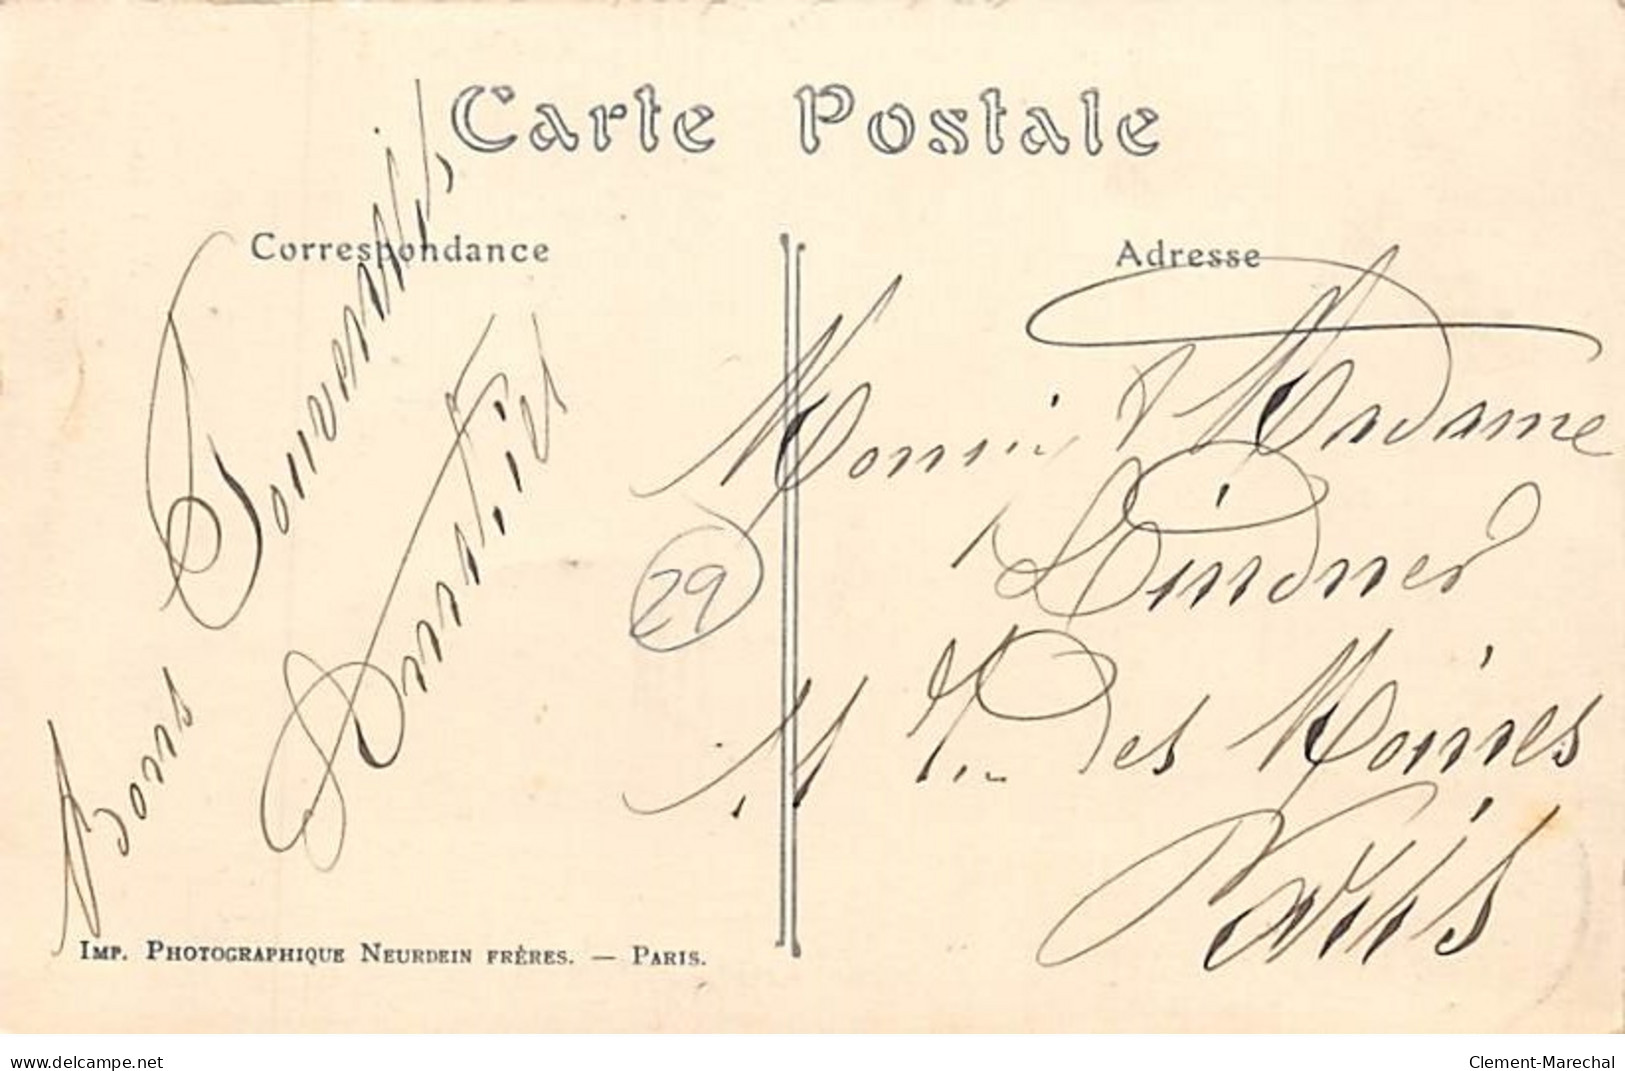 Carte Postale
Correspondance
Adresse
Bons Souvenirs
29
& Madame
Lindner
11 des Moines
Paris
IMP. PHOTOGRAPHIQUE NEURDEIN FRÈRES. — PARIS.
www.delcampe.net
Clement-Marechal